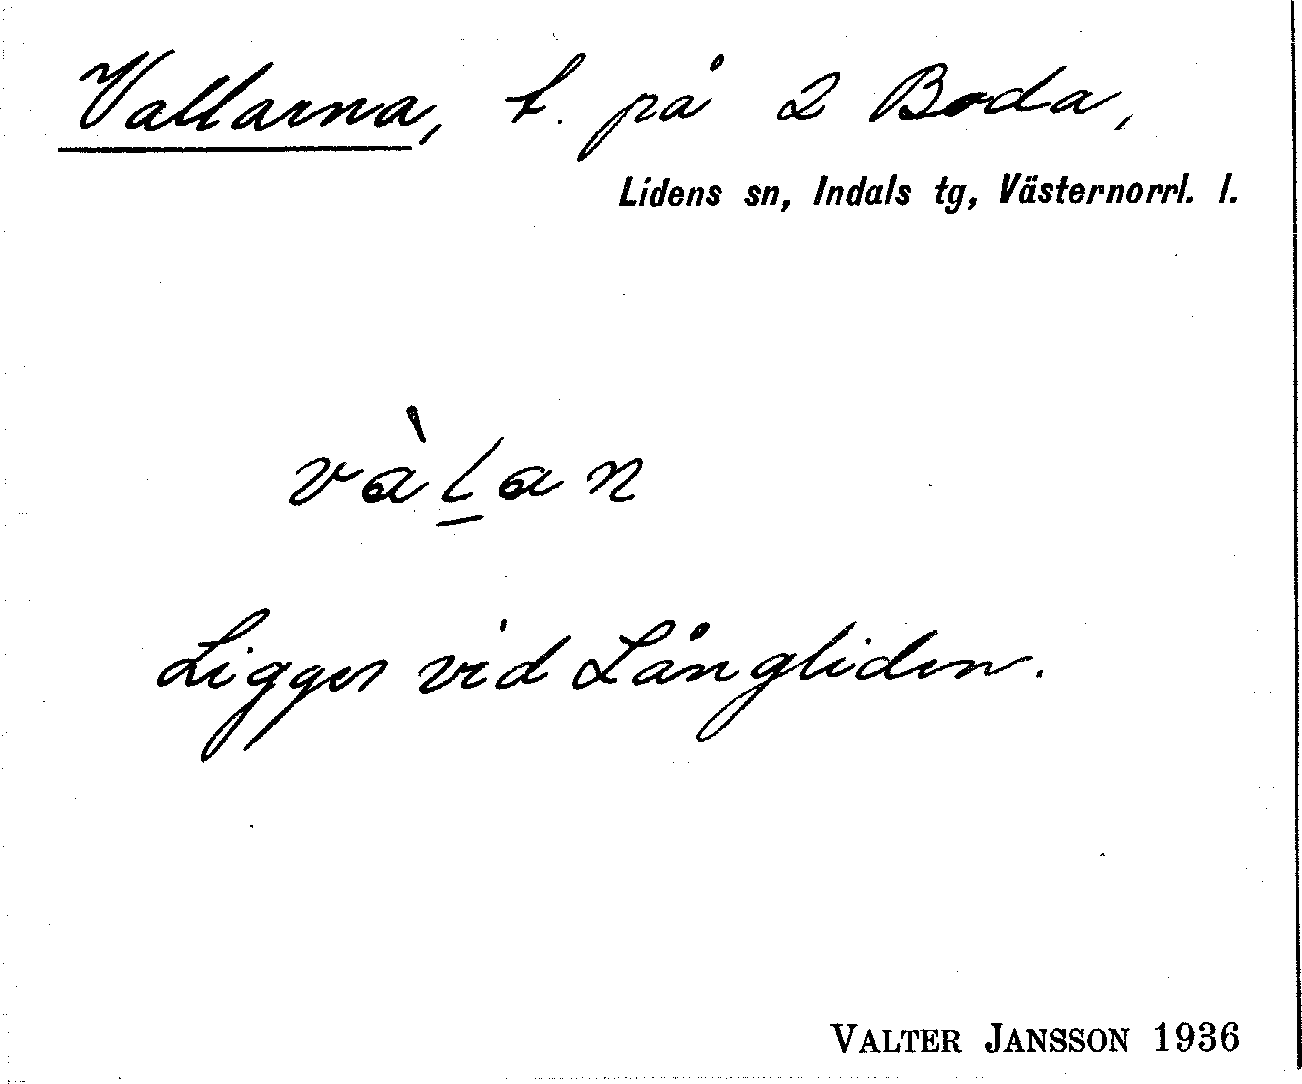 Vallarna, t. på 2 Boda,
Lidens sn, Indals tg, Västernorrl. l.
vàl̲an
Ligger vid Långliden.
VALTER JANSSON 1936